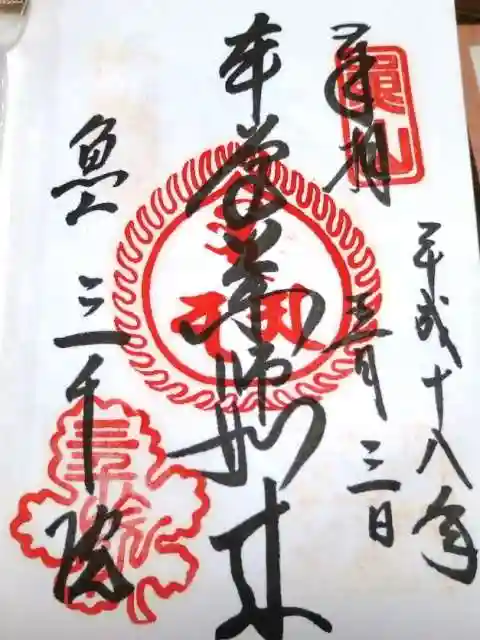 奉拝
平成十八年
五月三日
本尊薬師如来
魚山 三千院